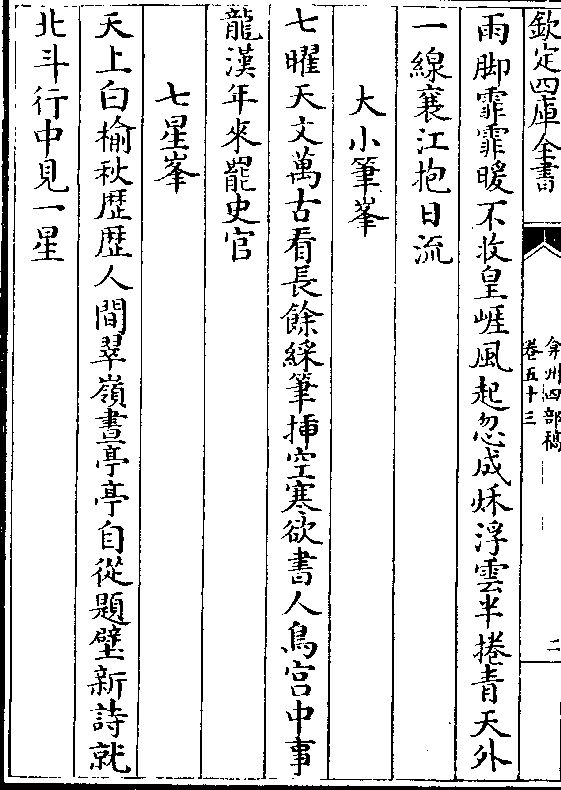 欽定四庫全書
弇州四部稿
卷五十三
二
雨脚霏霏暖不收皇崕風起忽成秌浮雲半捲青天外
一線襄江抱日流
大小筆峯
七曜天文萬古看長餘綵筆揷空寒欲書人鳥宫中事
龍漢年來罷史官
七星峯
天上白榆秋歴歴人間翠嶺晝亭亭自從題壁新詩就
北斗行中見一星